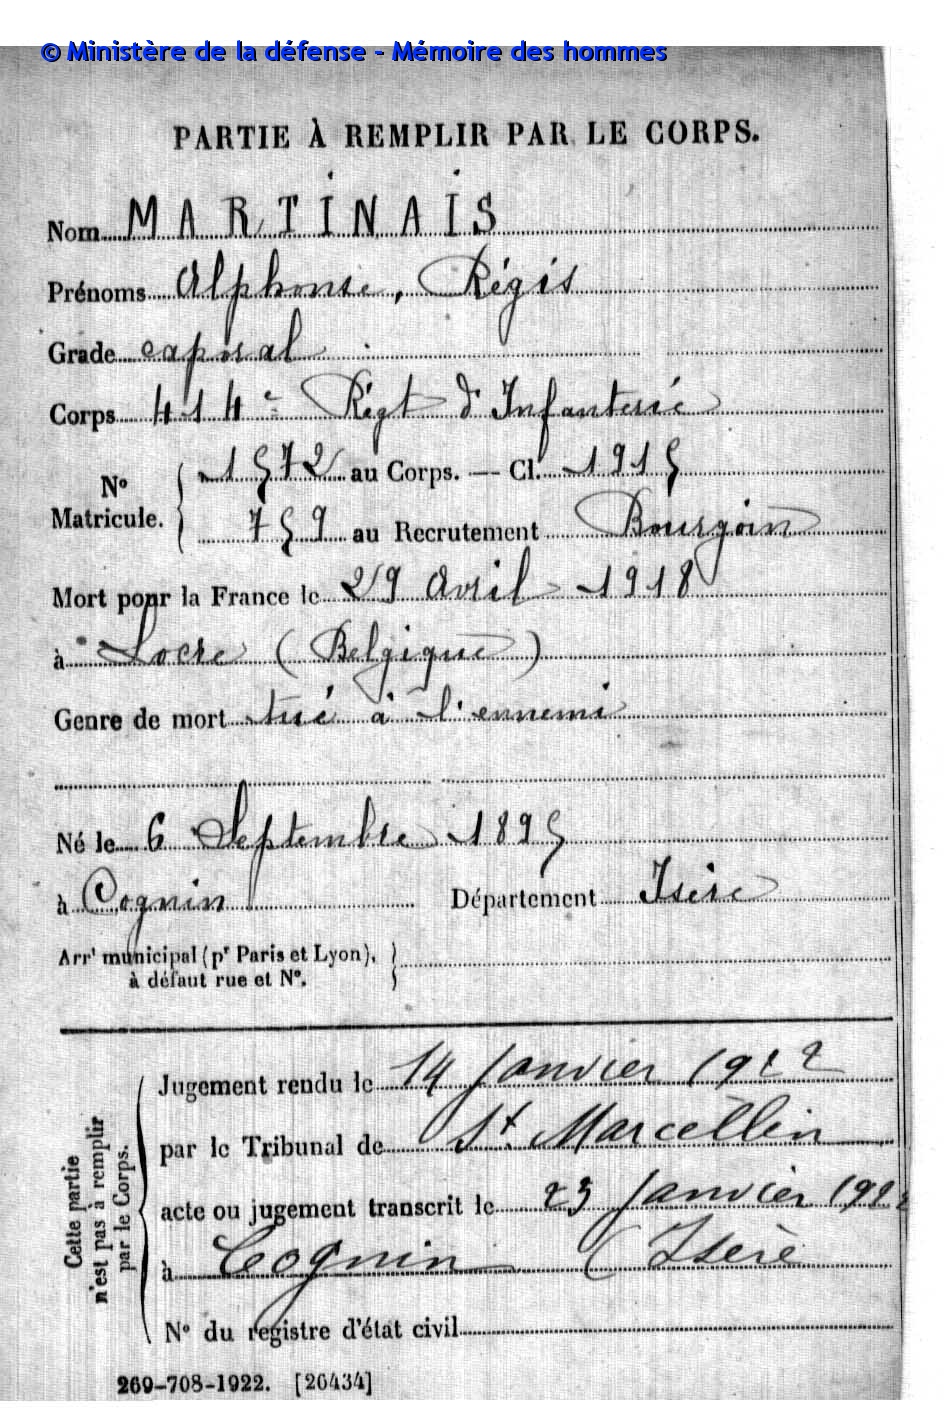 © Ministère de la défense - Mémoire des hommes
PARTIE À REMPLIR PAR LE CORPS.
Nom MARTINAIS
Prénoms Alphonse, Régis
Grade caporal
Corps 414e Régt d'Infanterie
No Matricule. { 1572 au Corps. — Cl. 1915
759 au Recrutement Bourgoin
Mort pour la France le 29 Avril 1918
à Locre (Belgique)
Genre de mort tué à l'ennemi
Né le 6 Septembre 1895
à Cognin Département Isère
Arrt municipal (pr Paris et Lyon), }
à défaut rue et No.
Cette partie
n'est pas à remplir
par le Corps.
Jugement rendu le 14 Janvier 1922
par le Tribunal de St Marcellin
acte ou jugement transcrit le 23 Janvier 1922
à Cognin (Isère
No du registre d'état civil
269-708-1922. [26434]